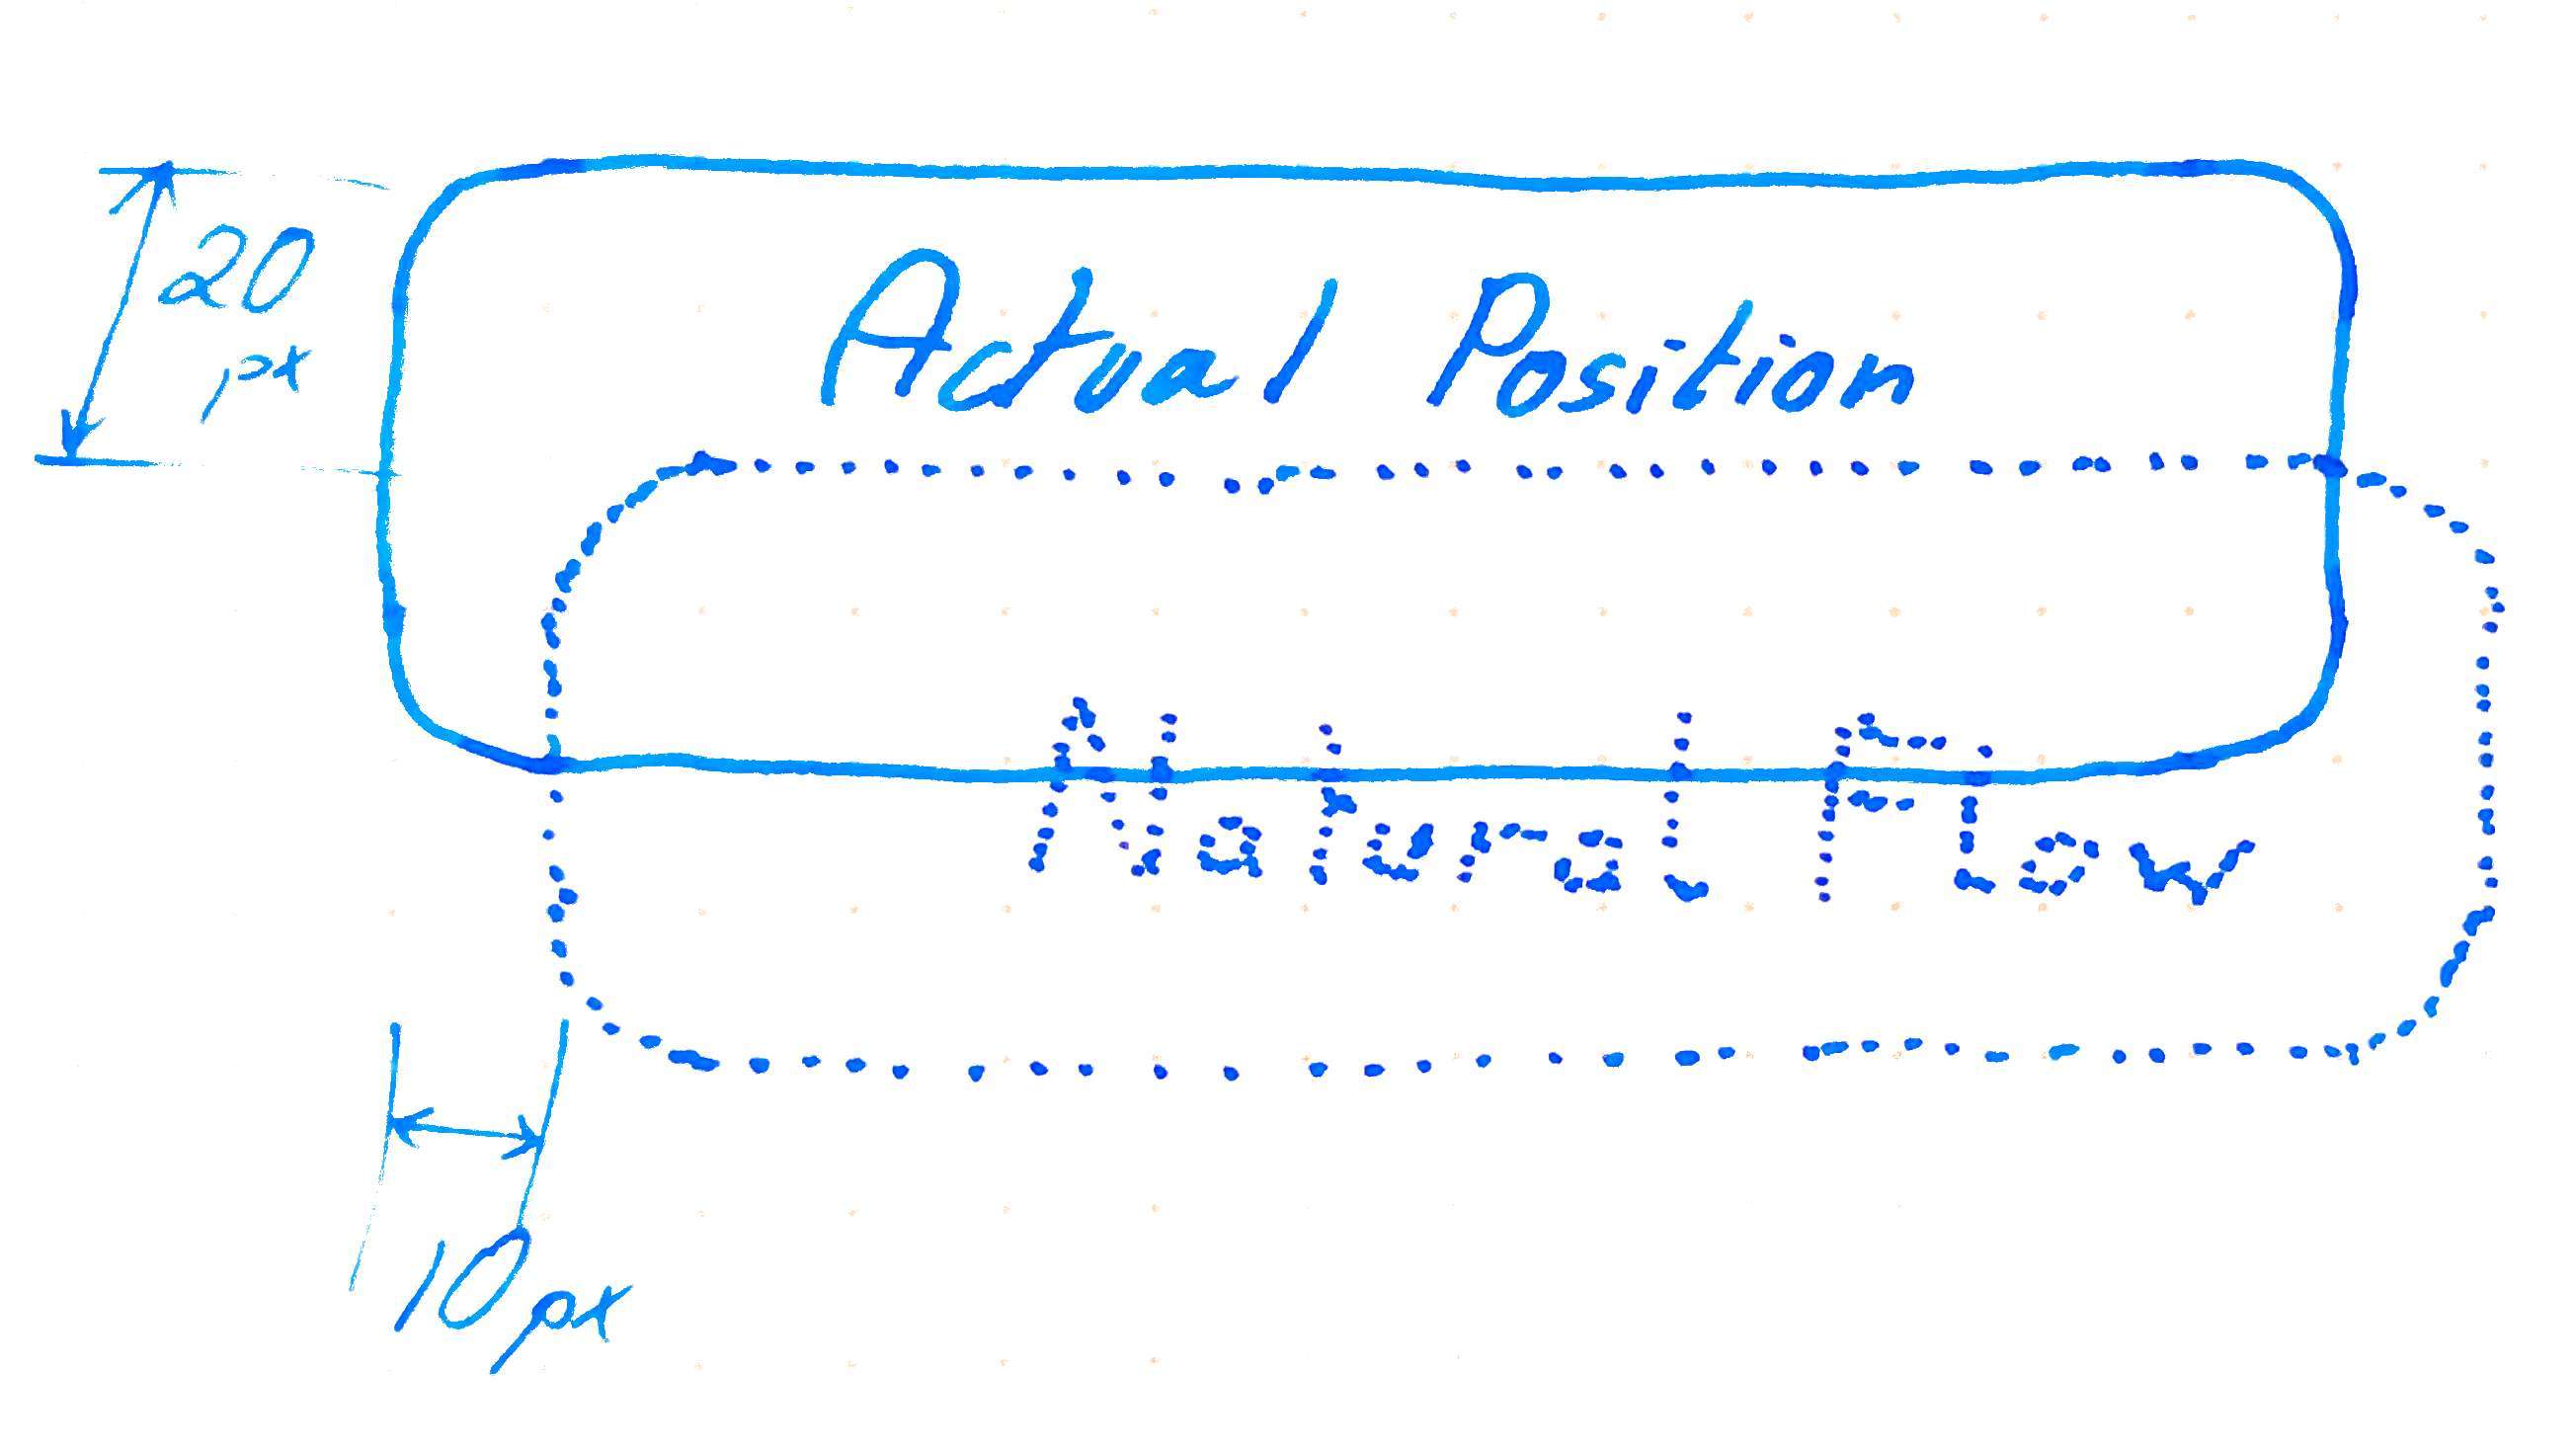 20
px
Actual Position
Natural Flow
10px